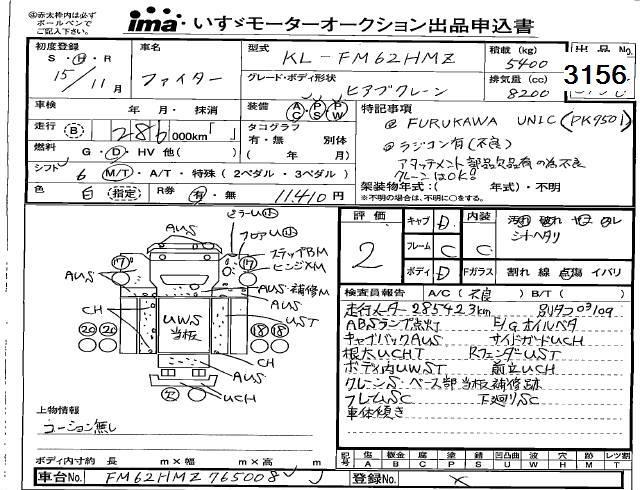 ㊟赤太枠内は必ず
ボールペンで
ご記入下さい。
ima いすゞモーターオークション出品申込書
初度登録
S・H・R
15/11月
車名
ファイター
型式
KL-FM62HMZ
グレード・ボディ形状
ヒアブクレーン
積載 (kg)
5400
排気量 (cc)
8200
出品No.
3156
車検 年・月・抹消
装備 AC PS PW
走行 B 286 000km
タコグラフ
有・無 別体
( 年 月)
燃料 G・D・HV 他( )
シフト 6 M/T・A/T・特殊(2ペダル・3ペダル)
色 白 (指定) R券 有・無 11410円
特記事項
@ FURUKAWA UNIC (PK9501)
@ ラジコン有(不良)
アタッチメント部品欠品有の為不良
クレーンはOK!
架装物年式:( 年式)・不明
※不明の場合は、不明に○をする。
評価
2
キャブ D
フレーム C
ボディ D
内装 C
Fガラス
汚れ 破れ ヤケ ヨレ
シートヘタリ
割れ 線 点傷 イバリ
検査員報告 A/C(不良) B/T( )
走行メーター 285423km 別リタコ 03/09
ABSランプ点灯 E/Gオイルベタ
キャブバックAUS サイドガードUCH
根太UCHT RフェンダーUST
ボディ内UWST 前立UCH
クレーンS・ベース部当板補修跡
フレームSC 下廻りSC
車体傾き
ミラーU小
フロアU小
ステップBM
ヒンジXM
AUS
17
17
AUS
AUS・補修M
CH
UWS
当板
UST
20 20
18 18
CH
AUS
UCH
上物情報
コーション無し
ボディ内寸約 長 m×幅 m×高 m
記号 傷A 板金B 腐C 塗P 錆S 凹凸曲U 波W 穴H 跡X メッキM レンズ割T
車台No. FM62HMZ765008 J
登録No. ×